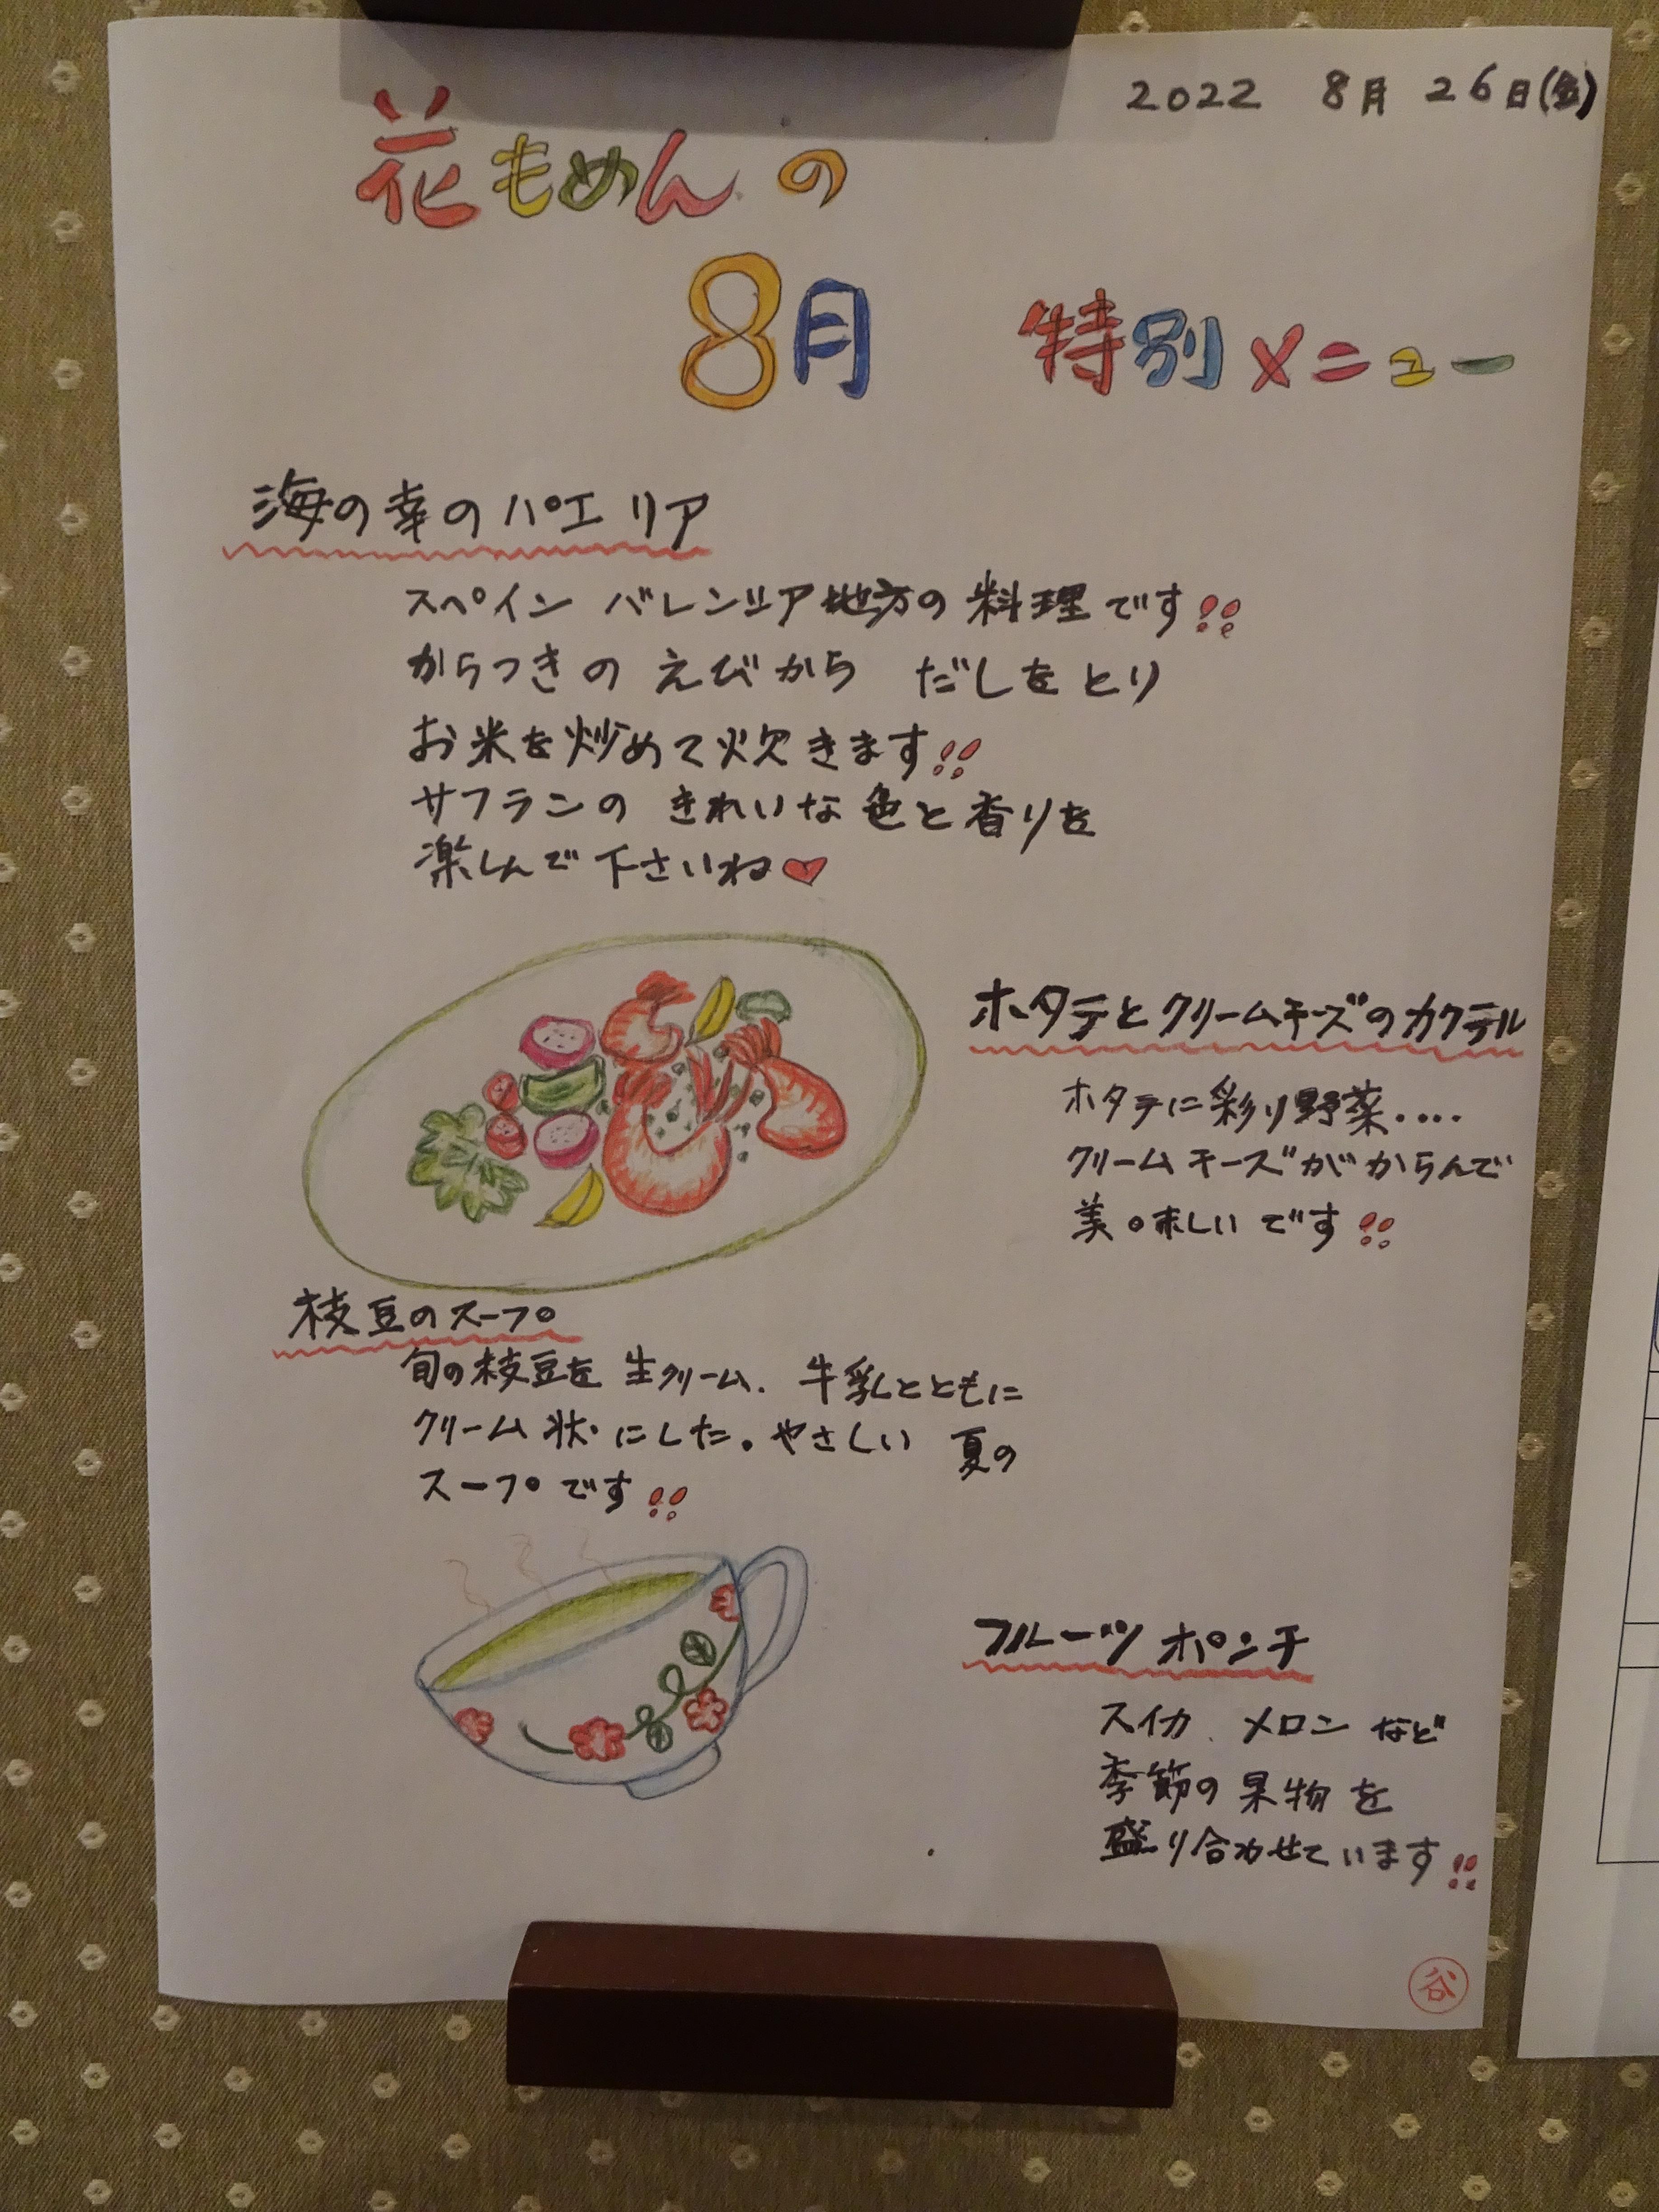 2022 8月 26日(金)
花もめんの
8月 特別メニュー
海の幸のパエリア
スペイン バレンシア地方の料理です!!
からつきの えびから だしをとり
お米を炒めて炊きます!!
サフランの きれいな色と香りを
楽しんで下さいね♥
ホタテとクリームチーズのカクテル
ホタテに彩り野菜....
クリームチーズがからんで
美味しいです!!
枝豆のスープ
旬の枝豆を 生クリーム、牛乳とともに
クリーム状にした。やさしい 夏の
スープです!!
フルーツ ポンチ
スイカ、メロン など
季節の果物を
盛り合わせています!!
谷